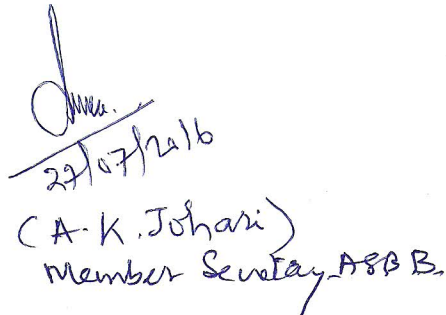 27/07/2016
(A.K. Johari)
Member Secretary ASBB.